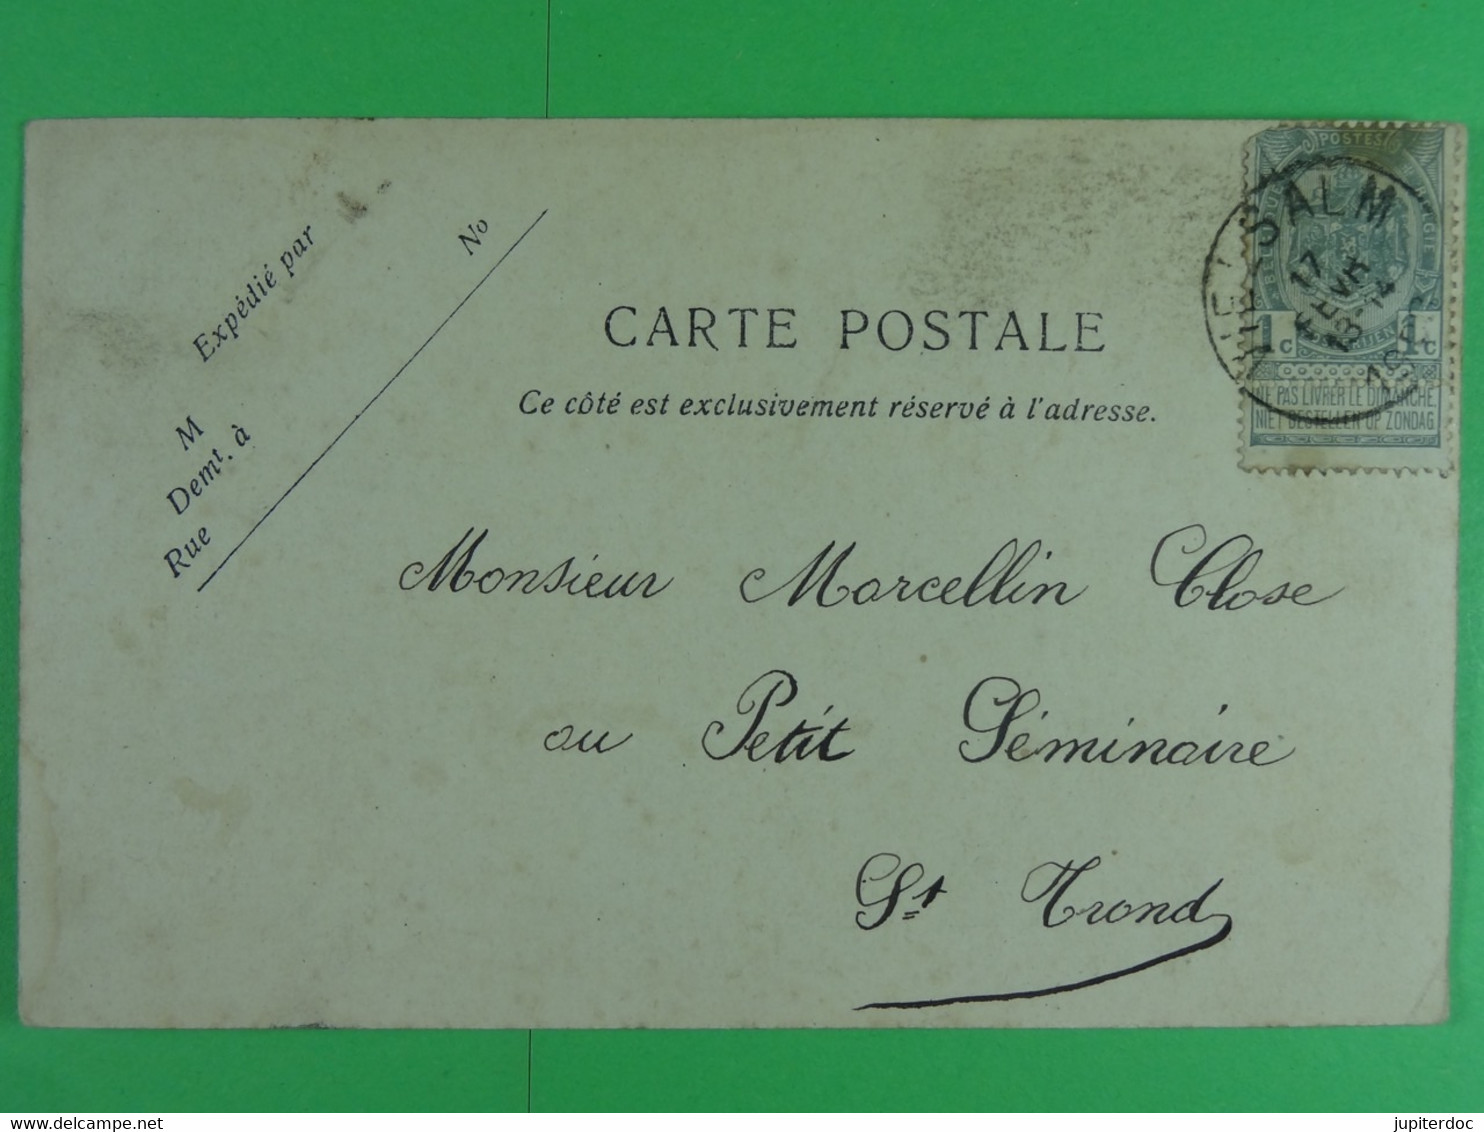 Expédié par
No
M
Demt. à
Rue
CARTE POSTALE
Ce côté est exclusivement réservé à l'adresse.
POSTES
SALM
17
13-14
1c 1c
NE PAS LIVRER LE DIMANCHE
NIET BESTELLEN OP ZONDAG
Monsieur Marcellin Close
au Petit Séminaire
St Trond
delcampe.net
jupiterdoc